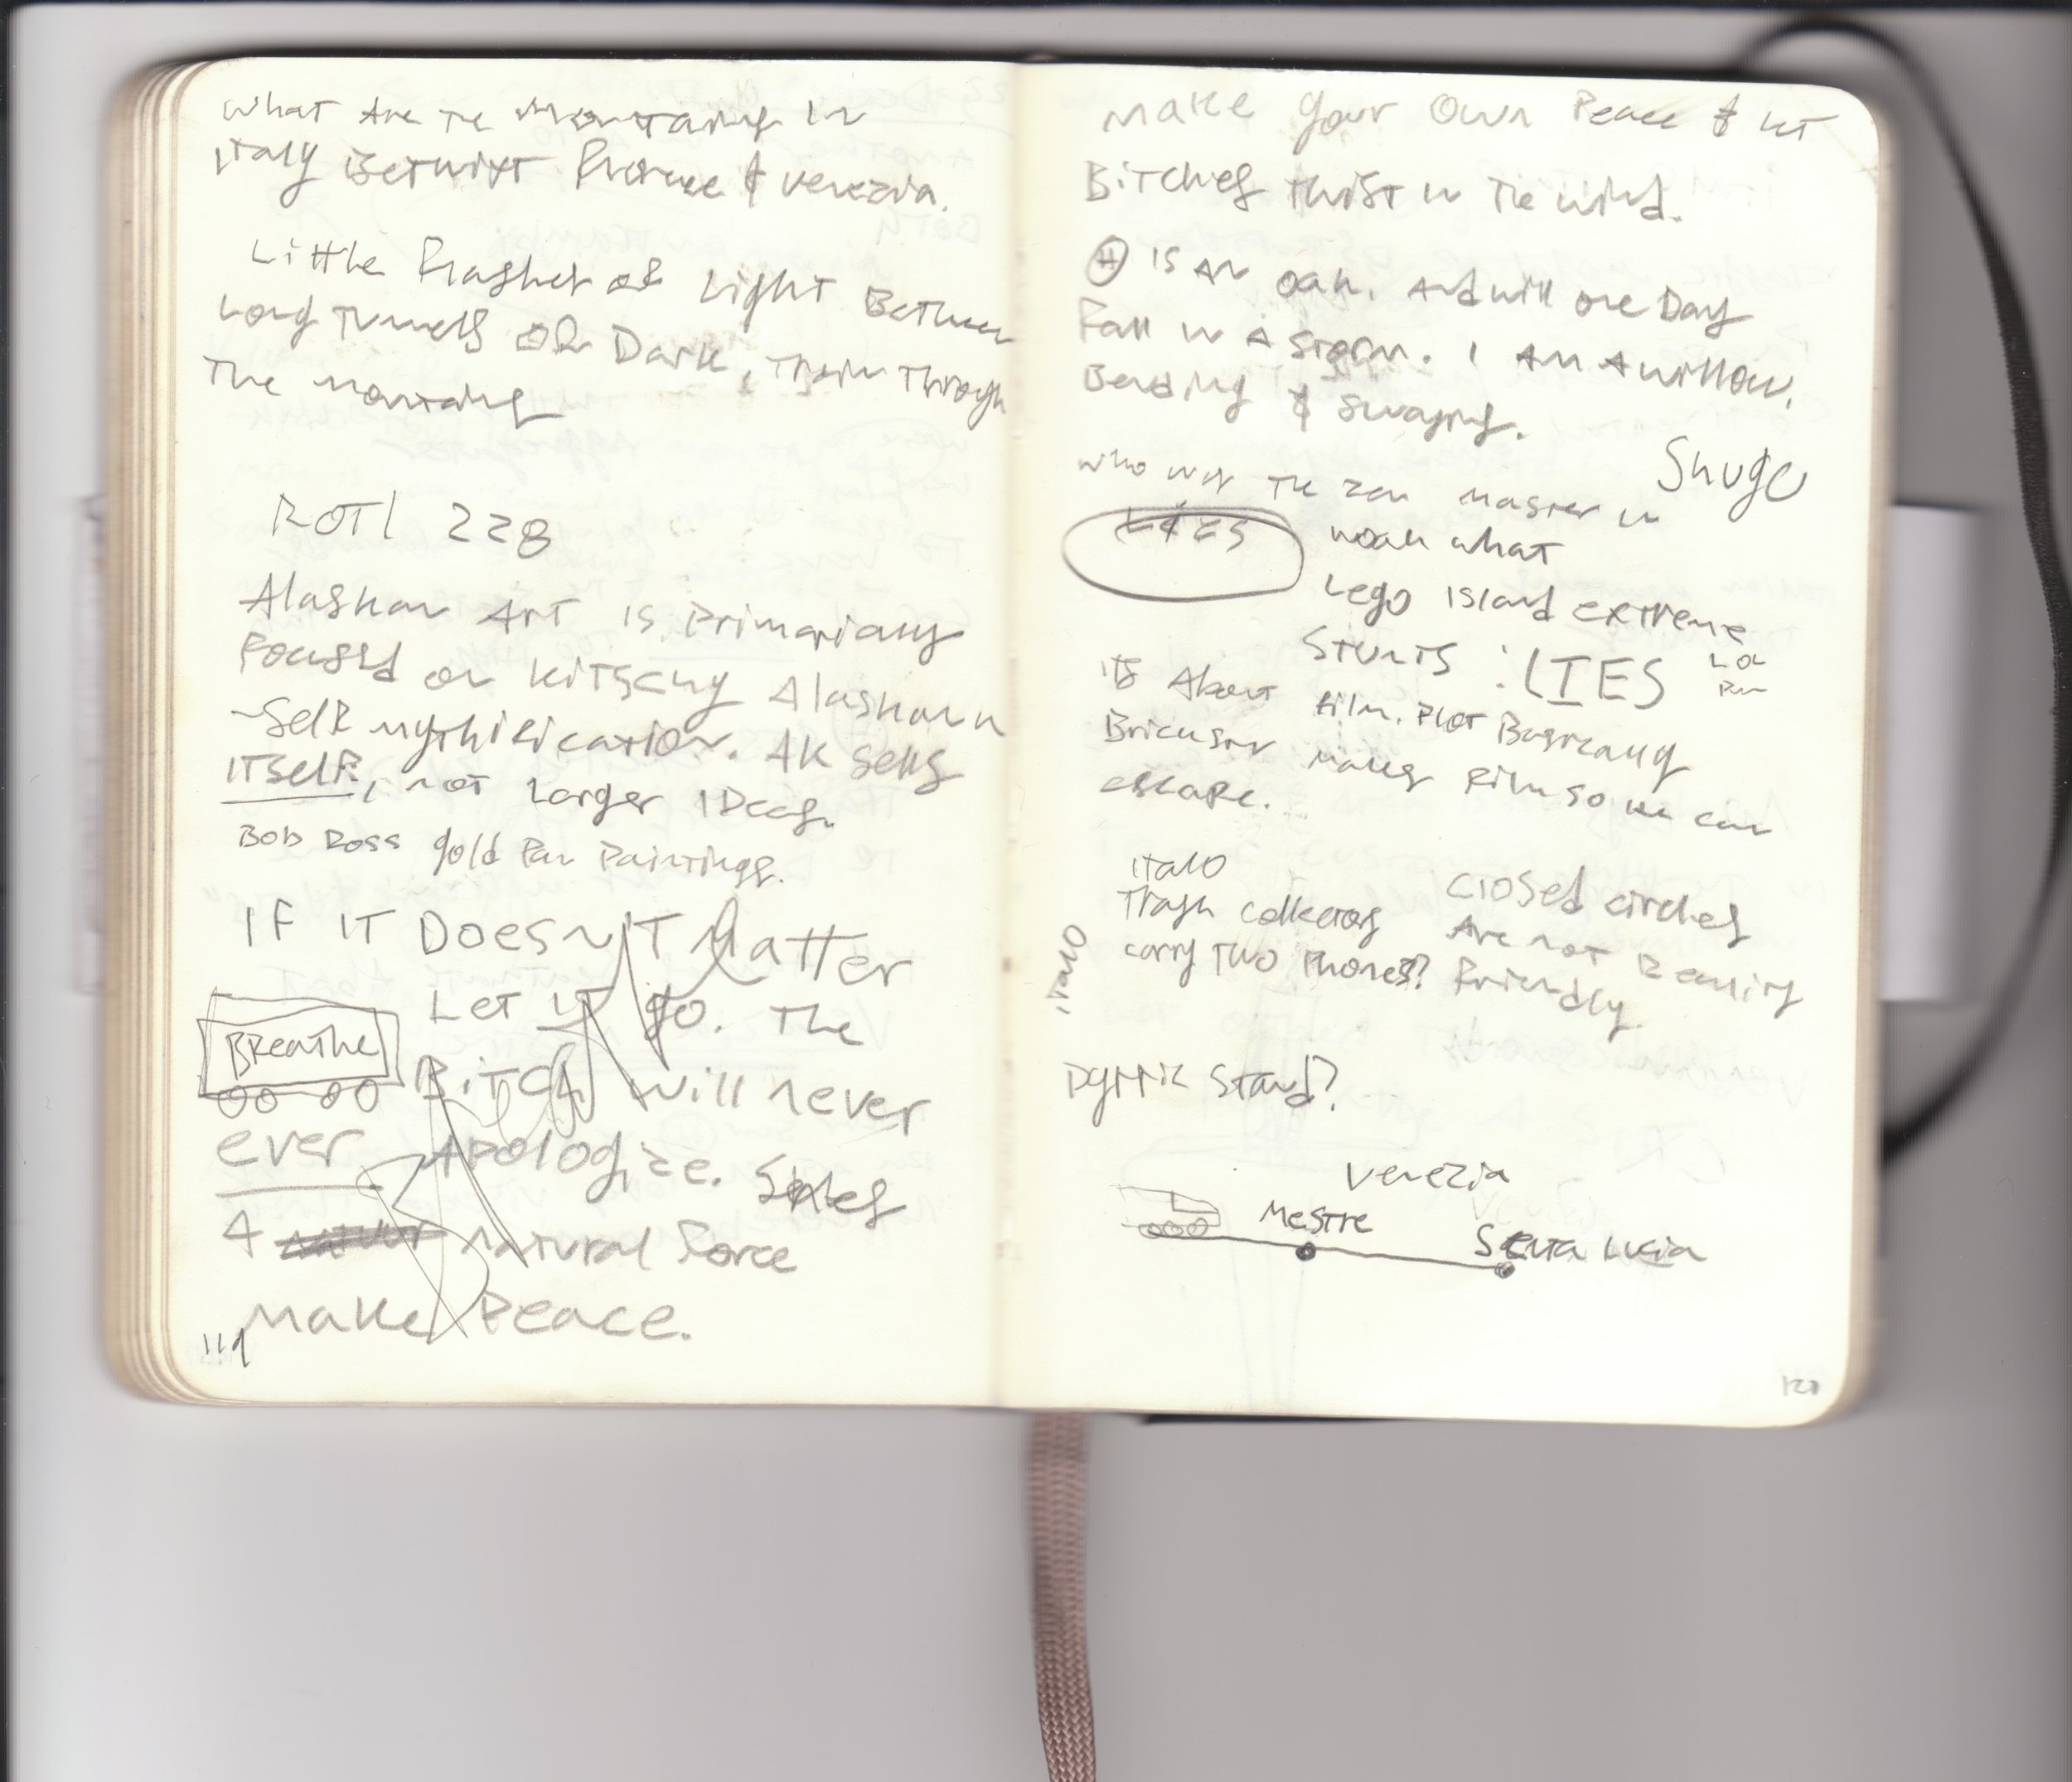 What are the mountains in
Italy Betwixt Florence & Venezia.
Little flashes of Light Between
Long Tunnels of Dark, Train Through
The mountains
ROTL 228
Alaskan Art is Primarialy
Focused on kitschy Alaskana
-Self mythification. AK sells
itself, not larger ideas.
Bob Ross gold Pan Paintings.
IF IT Doesn't Matter
Let it go. The
Breathe
Bitch will never
ever Apologize. She's
A natural Force
Make Peace.
119
Make your own Peace & let
Bitches twist in the wind.
(H) is an oak. And will one Day
Fall in a storm. I am a willow,
Bending & swaying.
who was the zen master in
LIES
woah what
Lego Island extreme
Stunts : LIES
its About film. Plot Basically
Brickster makes film so he can
escape.
Italo
Trash collectors
carry two phones?
Closed circles
Are not
Friendly.
Italo
Dyptic Stand?
Venezia
Mestre
Santa Lucia
120